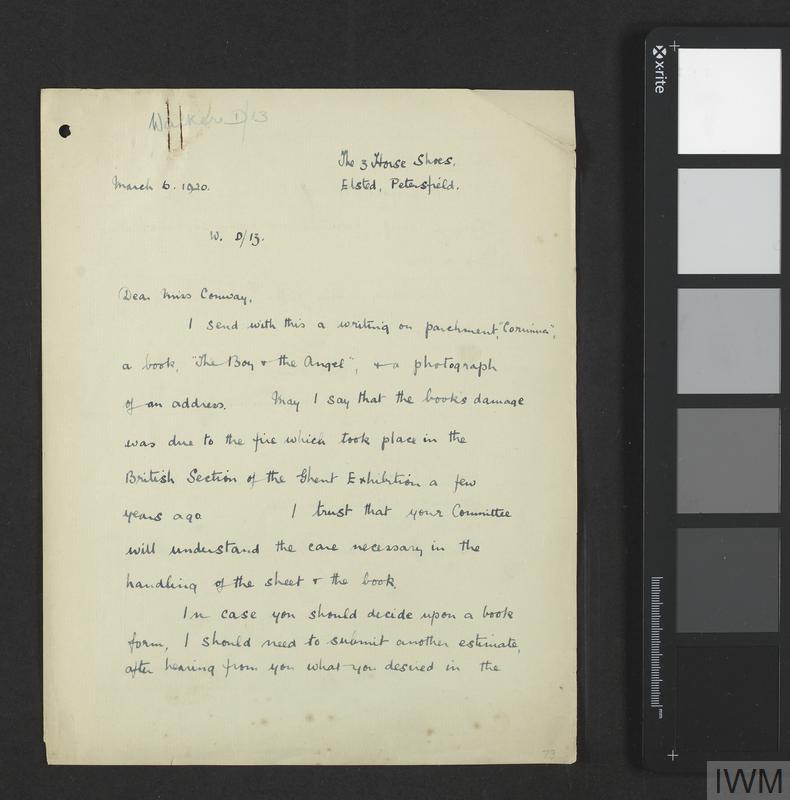 Walker D/13
The 3 Horse Shoes.
March 6. 1920. Elsted, Petersfield.
W. D/13.
Dear Miss Conway,
I send with this a writing on parchment,
a book, "The Boy & the Angel", & a photograph
of an address. May I say that the book's damage
was due to the fire which took place in the
British Section of the Ghent Exhibition a few
years ago. I trust that your Committee
will understand the care necessary in the
handling of the sheet & the book.
In case you should decide upon a book
form, I should need to submit another estimate,
after hearing from you what you desired in the
73
x-rite
mm
IWM